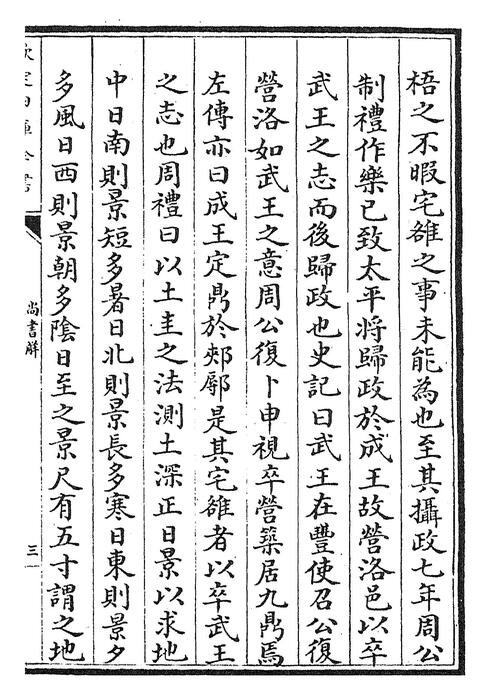 梧之不暇宅雒之事未能為也至其攝政七年周公
制禮作樂已致太平將歸政於成王故營洛邑以卒
武王之志而後歸政也史記曰武王在豐使召公復
營洛如武王之意周公復卜申視卒營築居九鼎焉
左傳亦曰成王定鼎於郟鄏是其宅雒者以卒武王
之志也周禮曰以土圭之法測土深正日景以求地
中日南則景短多暑日北則景長多寒日東則景夕
多風日西則景朝多陰日至之景尺有五寸謂之地
欽定四庫全書
尚書解
三